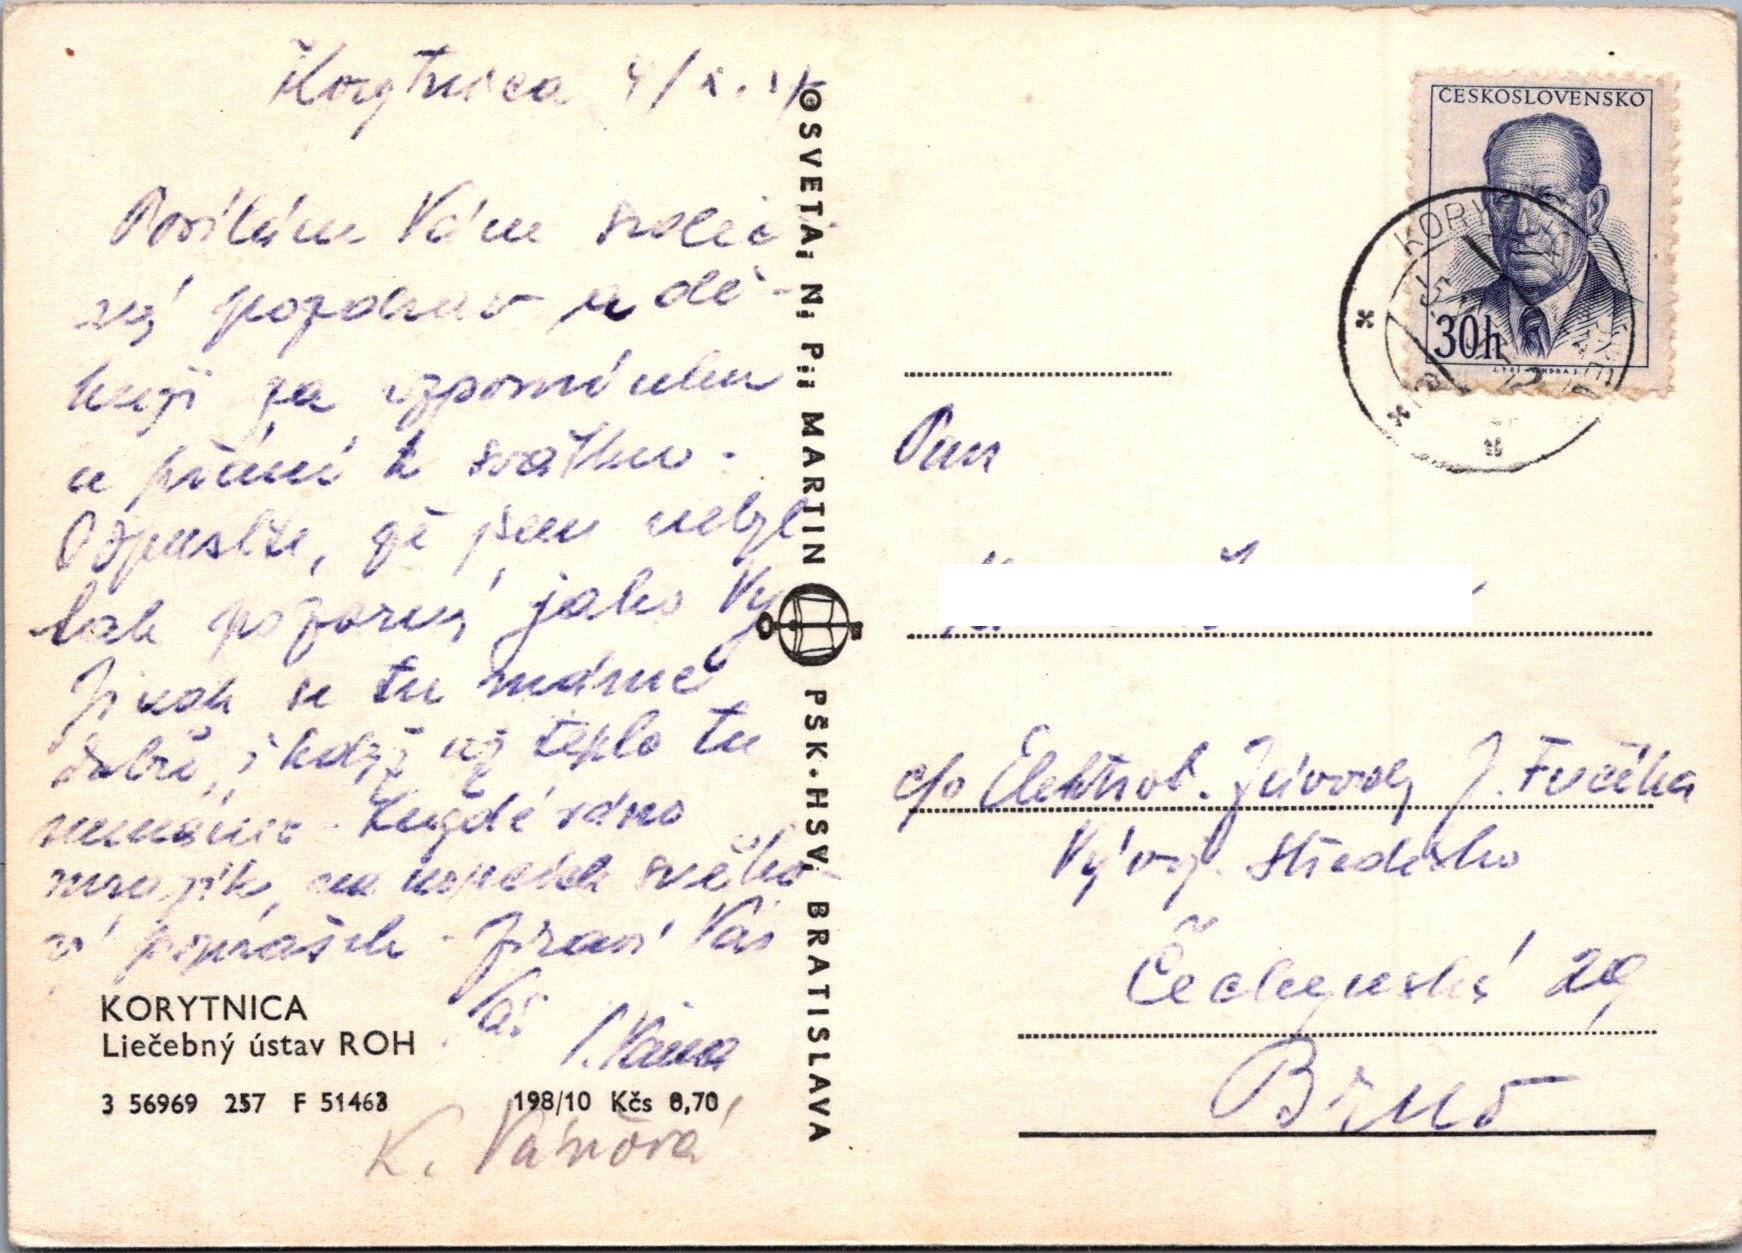 Korytnica 4/X.
Posílám Vám srdeč-
ný pozdrav a dě-
kuji za vzpomínku
a přání k svátku.
Odpusťte, že jsem nebyl
tak pozorný jako Vy
Jinak se tu máme
dobře, i když už teplo tu
nemáme. Každé ráno
mrazík, na kopcích sněho-
vý poprašek. Zdraví Vás
Váš
Vána
K. Váňová
KORYTNICA
Liečebný ústav ROH
3 56969 257 F 51463
198/10 Kčs 0,70
OSVETA, N. P., MARTIN
PSK-HSV, BRATISLAVA
ČESKOSLOVENSKO
30h
KORY
Pan
c/o Elektrot. Závody J. Fučíka
Vývoj. středisko
Čechyňská 29
Brno